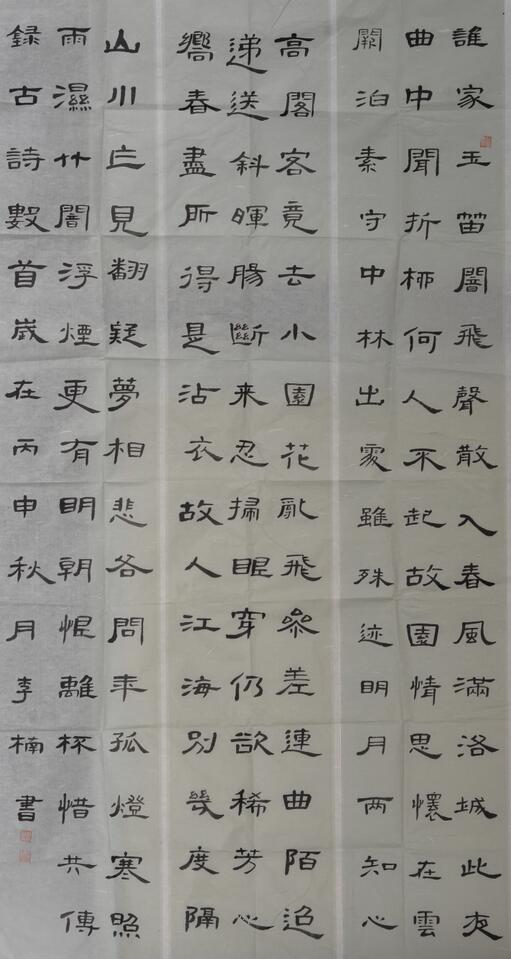 誰家玉笛闇飛聲散入春風滿洛城此夜
曲中聞折柳何人不起故園情思懷在雲
闕泊素守中林出處雖殊迹明月两知心
高閣客竟去小園花亂飛參差連曲陌迢
遞送斜暉腸斷未忍掃眼穿仍欲稀芳心
嚮春盡所得是沾衣故人江海別幾度隔
山川乍見翻疑夢相悲各問年孤燈寒照
雨濕竹闇浮煙更有明朝恨離杯惜共傳
録古詩數首歲在丙申秋月李楠書